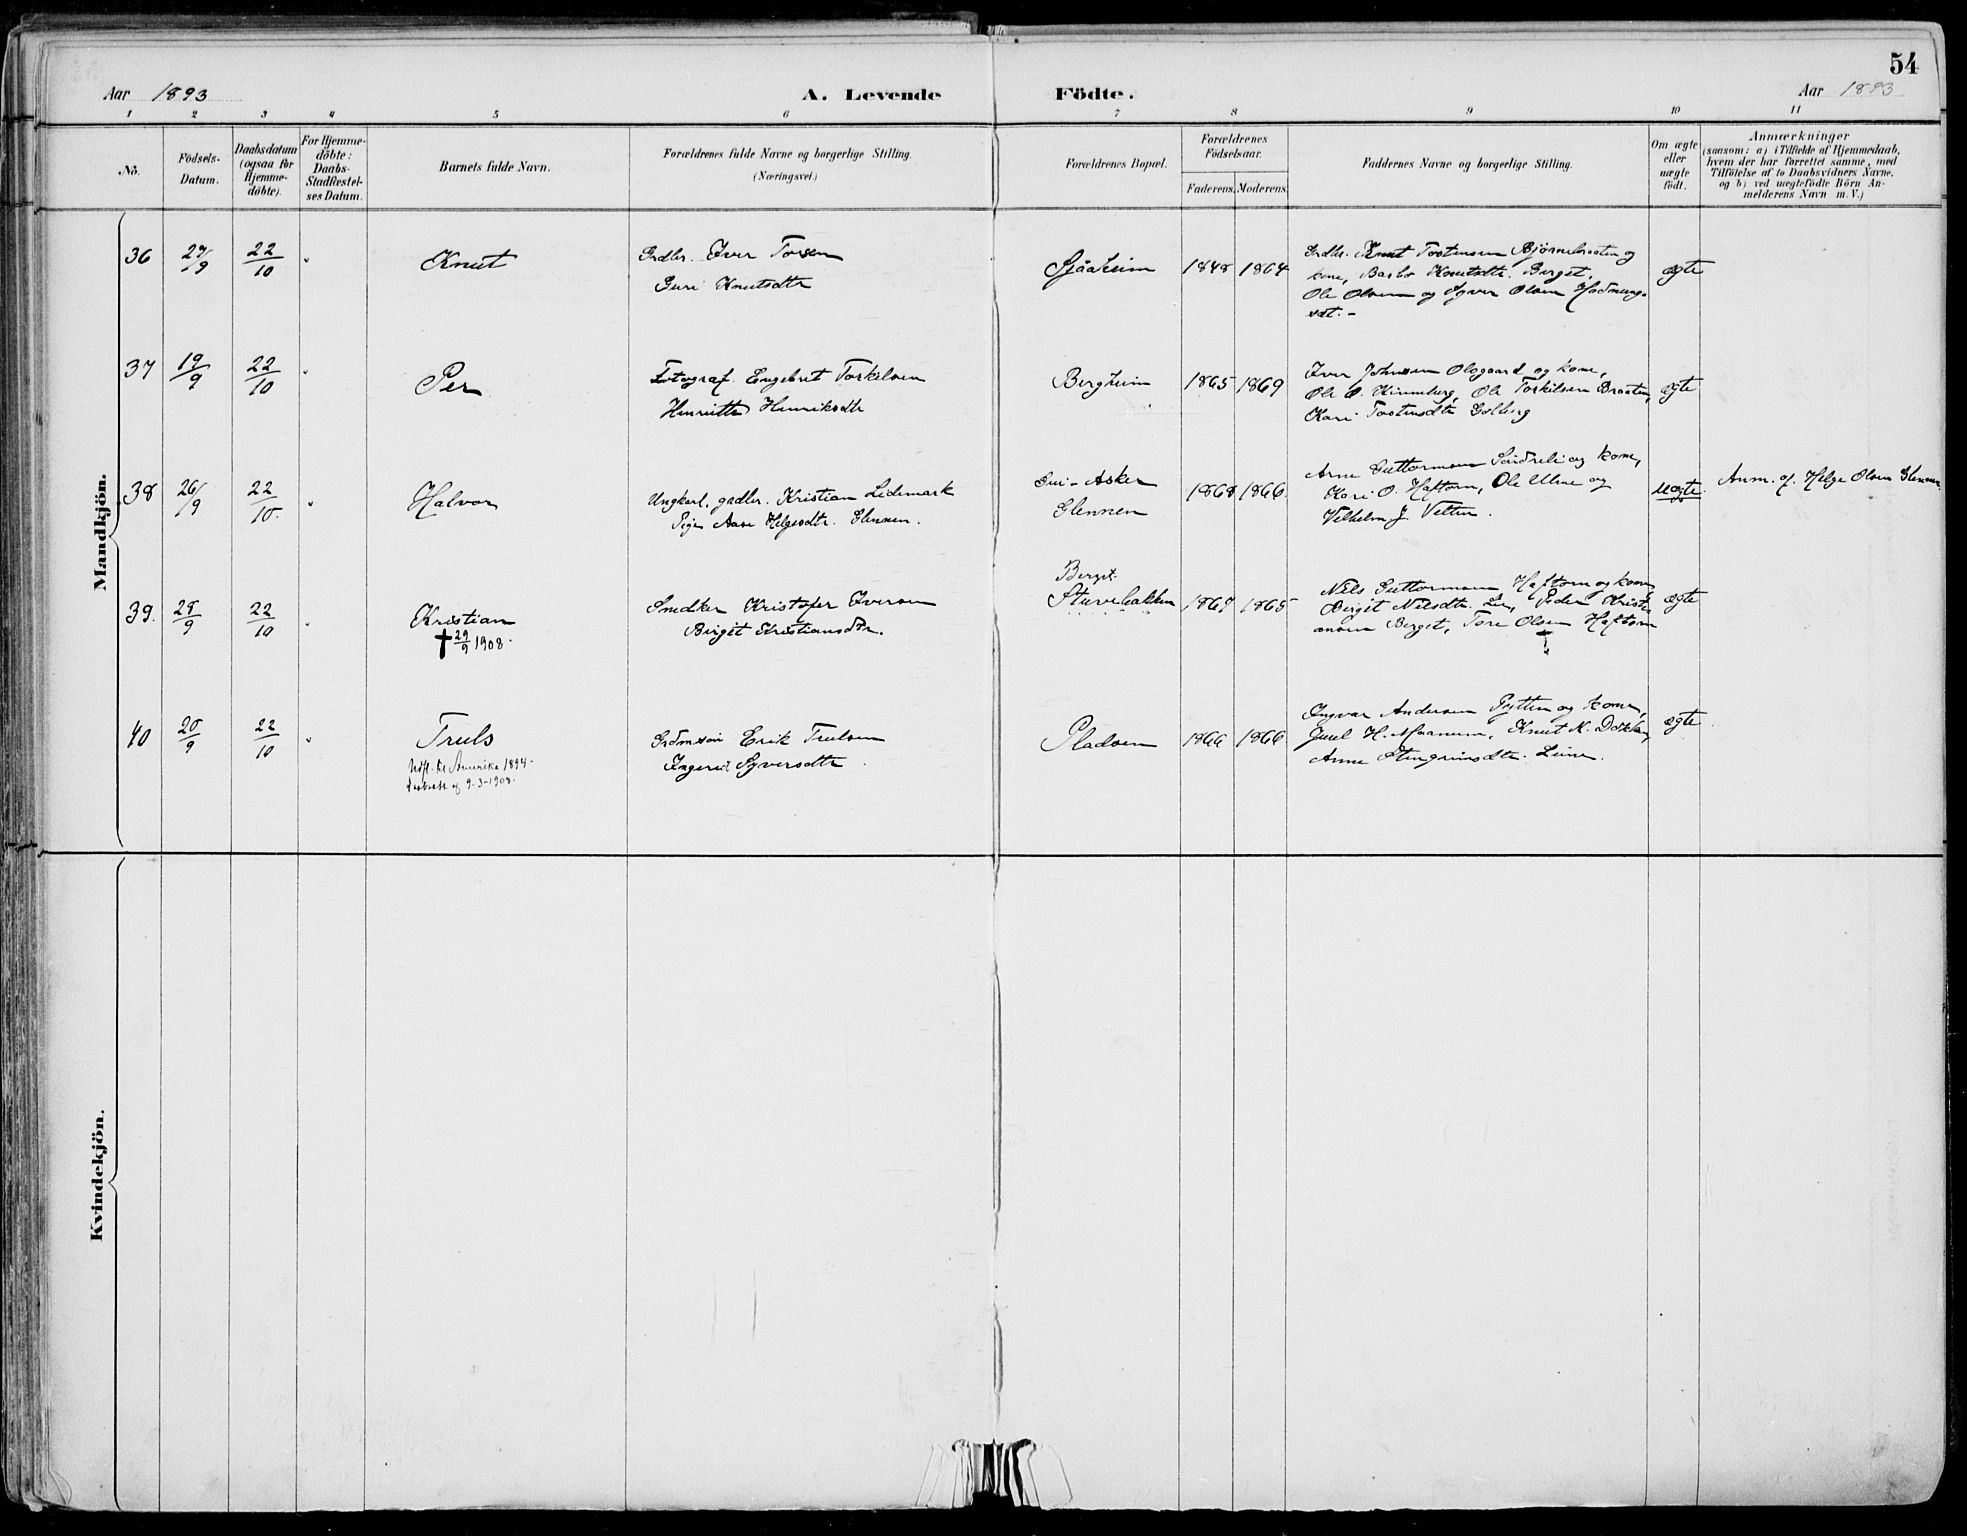 54
Aar 1893
A. Levende Födte.
Aar 1893
1 2 3 4 5 6 7 8 9 10 11
Nö.
Födsels-
Datum.
Daabsdatum
(ogsaa for
Hjemme-
döbte).
For Hjemme-
döbte:
Daabs-
Stadfæstel-
ses Datum.
Barnets fulde Navn.
Forældrenes fulde Navne og borgerlige Stilling.
(Næringsvei.)
Forældrenes Bopæl.
Forældrenes
Födselsaar.
Faderens. Moderens.
Faddernes Navne og borgerlige Stilling.
Om ægte
eller
uægte
födt.
Anmærkninger
(saasom: a) i Tilfælde af Hjemmedaab,
hvem der har forrettet samme, med
Tilföielse af to Daabsvidners Navne,
og b) ved uægtefödte Börn An-
melderens Navn m. V.)
Mandkjön.
36 27/9 22/10 " Knut
Grdbr. Iver Torsen
Guri Knutsdtr
Sjåaheim 1848 1864
Grdbr. Knut Tostensen Bjørnebraaten og
kone, Barbo Knutsdtr. Berget,
Ole Olsen og Olsen
ægte
37 19/9 22/10 " Per
Fotograf. Engebret Torkelsen
Henriette Henriksdtr
Bergheim 1865 1869
Iver Johnsen Olsgaard og kone,
Ole O. Ole Torkilsen Braaten,
Kari Tostensdtr Golberg
ægte
38 26/9 22/10. " Halvor
Ungkarl, gadbr. Kristian Lidemark
Pige Aase Helgesdtr. Glennen.
Asker
Glennen
1868 1866.
Arne Guttormsen og kone,
Kari O. Haftorn, Ole Ulne og
Vilhelm J. Velten.
uægte.
Anm. af. Helge Olsen Glennen.
39. 28/9 22/10 " Kristian
✝ 29/9 1908.
Snedker Kristofer Iversen
Birgit Kristiansdtr.
Berget.
Stuvebakken 1867 1865
Nils Guttormsen Haftorn og kone,
Bergit Nilsdtr. Lie, Peder Kristi-
ansen Berget, Tore Olsen Haftorn
ægte
40 20/9 22/10 " Truls
Udfl. til Amerika 1894.
9-3-1908.
Grdmsøn Erik Trulsen
Ingerid Syversdtr.
Pladsen 1866 1866.
Ingvar Andersen og kone,
Juul H. Knut K.
Anne
ægte
Kvindekjön.